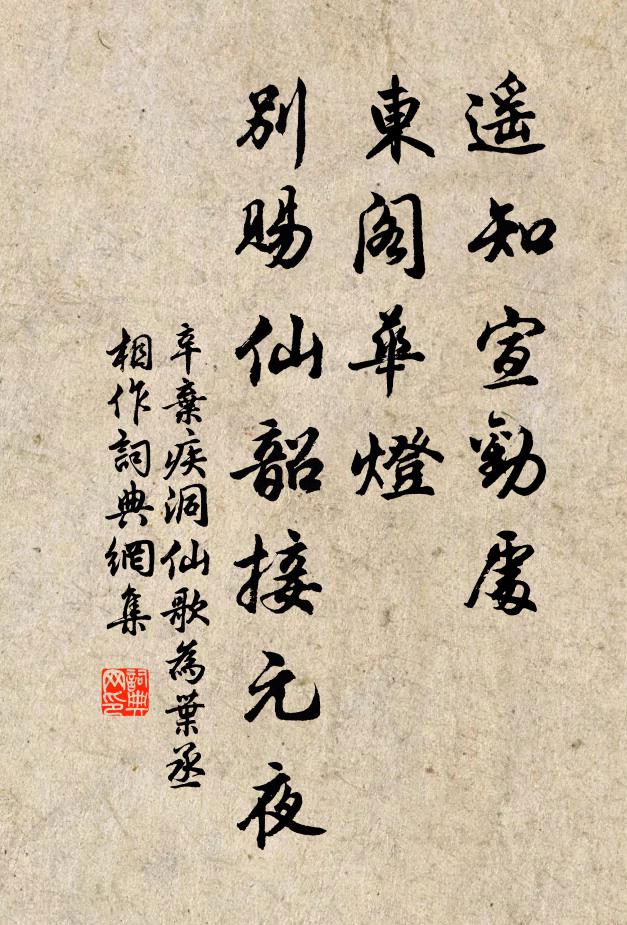 遥知宣勸處
東閣華燈
別賜仙韶接元夜
辛棄疾洞仙歌為葉丞
相作詞典網集
詞典
网印